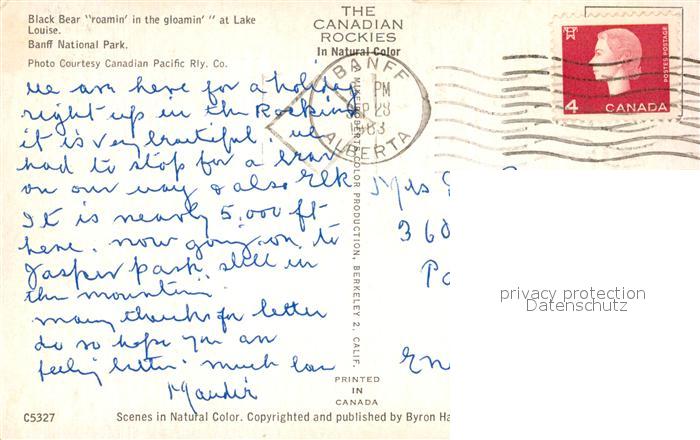 Black Bear "roamin' in the gloamin' " at Lake
Louise.
Banff National Park.
Photo Courtesy Canadian Pacific Rly. Co.
THE
CANADIAN
ROCKIES
In Natural Color
BANFF
PM
SP 28
1963
ALBERTA
4 CANADA
POSTES POSTAGE
we are here for a holiday
right up in the Rockies
it is very beautiful. we
had to stop for a bear
on our way & also Elk
It is nearly 5,000 ft
here. now going on to
Jasper park. still in
the mountains.
many thanks for letter
do so hope you are
feeling better. much love
Mrs
360
En
MIKE ROBERTS COLOR PRODUCTION, BERKELEY 2, CALIF.
PRINTED
IN
CANADA
privacy protection
Datenschutz
C5327 Scenes in Natural Color. Copyrighted and published by Byron Ha